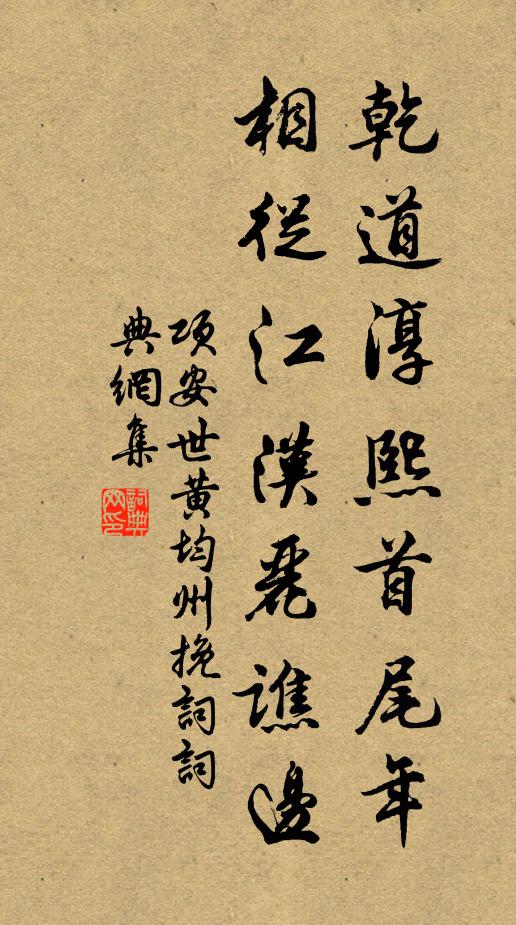 乾道淳熙首尾年
相從江漢麗譙邊
項安世黃均州挽詞詞
典網集
詞典網印